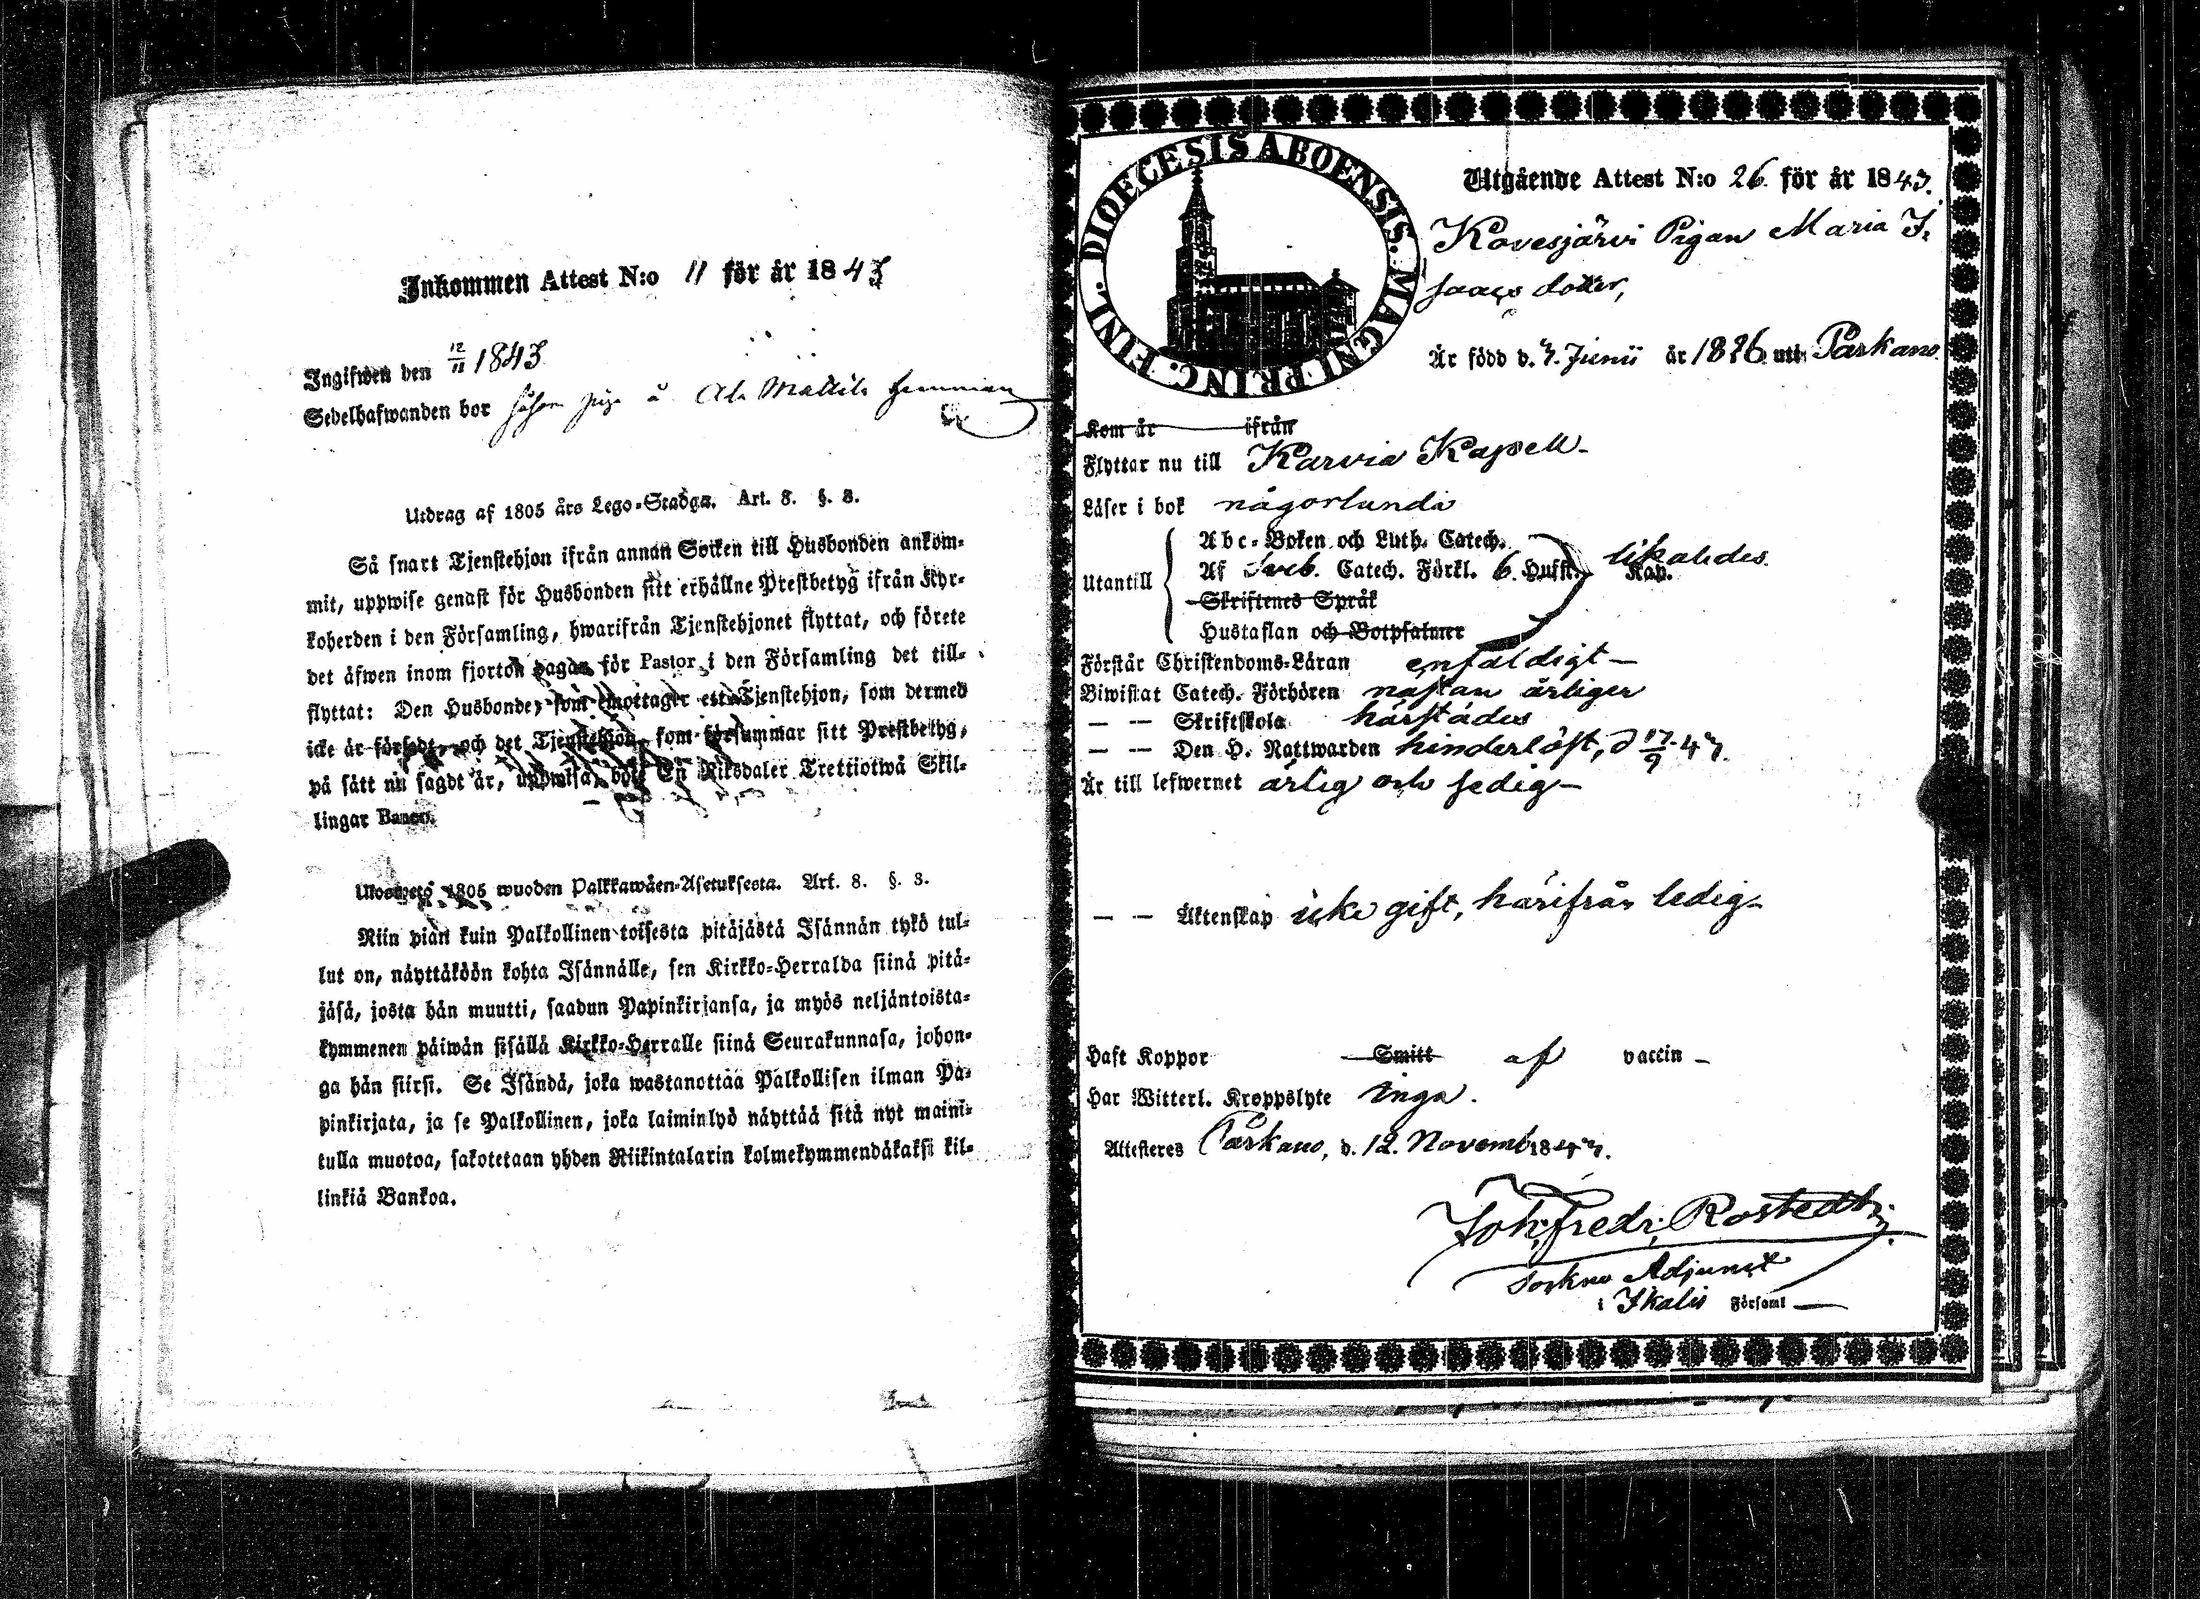 Inkommen Attest N:o 11 för år 1843
Ingifwen den 12/11 1843
Sedelhafwanden bor såsom piga å Ala Mattila hemman
Utdrag af 1805 års Lego-Stadga. Art. 8. §. 3.
Så snart Tjenstehjon ifrån annan Socken till Husbonden ankom-
mit, uppwise genast för Husbonden sitt erhållne Prestbetyg ifrån Kyr-
koherden i den Församling, hwarifrån Tjenstehjonet flyttat, och förete
det äfwen inom fjorton dagar för Pastor i den Församling det till-
flyttat: Den Husbonde, som emottager ett Tjenstehjon, som dermed
icke är försedt, och det Tjenstehjon, som försummar sitt Prestbetyg,
på sätt nu sagdt är, uppwisa, böte En Riksdaler Trettiotwå Skil-
lingar Banco.
Ulosweto 1805 wuoden Palkkawäen-Asetuksesta. Art. 8. §. 3.
Niin pian kuin Palkollinen toisesta pitäjästä Isännän tykö tul-
lut on, näyttäköön kohta Isännälle, sen Kirkko-Herralda siinä pitä-
jäsä, josta hän muutti, saadun Papinkirjansa, ja myös neljäntoista-
kymmenen päiwän sisällä Kirkko-Herralle siinä Seurakunnasa, johon-
ga hän siirsi. Se Isändä, joka wastanottaa Palkollisen ilman Pa-
pinkirjata, ja se Palkollinen, joka laiminlyö näyttää sitä nyt maini-
tulla muotoa, sakotetaan yhden Riikintalarin kolmekymmendäkaksi kil-
linkiä Bankoa.
DIOECESIS ABOENSIS. MAGNI PRINC. FINL.
Utgående Attest N:o 26. för år 1843.
Kovesjärvi Pigan Maria I-
saacs dotter,
Är född d. 3. Junii år 1826 uti Parkano
Kom år ifrån
Flyttar nu till Karvia Kapell-
Läser i bok någorlunda
Utantill
Abc-Boken och Luth. Catech.
Af Sveb. Catech. Förkl. 6. Hufst. Kap. likaledes.
Skriftenes Språk
Hustaflan och Botpsalmer
Förstår Christendoms-Läran enfaldigt –
Biwistat Catech. Förhören nästan årligen
— — Skriftskola härstädes
— — Den H. Nattwarden hinderlöst, d 17/9 43.
Är till lefwernet ärlig och sedig –
— — Äktenskap icke gift, härifrån ledig –
Haft Koppor Smitt af vaccin –
Har Witterl. Kroppslyte inga.
Attesteres Parkano, d. 12. Novemb. 1843.
Joh. Fredr. Rostedt
Sockne Adjunct
i Ikalis Församl –